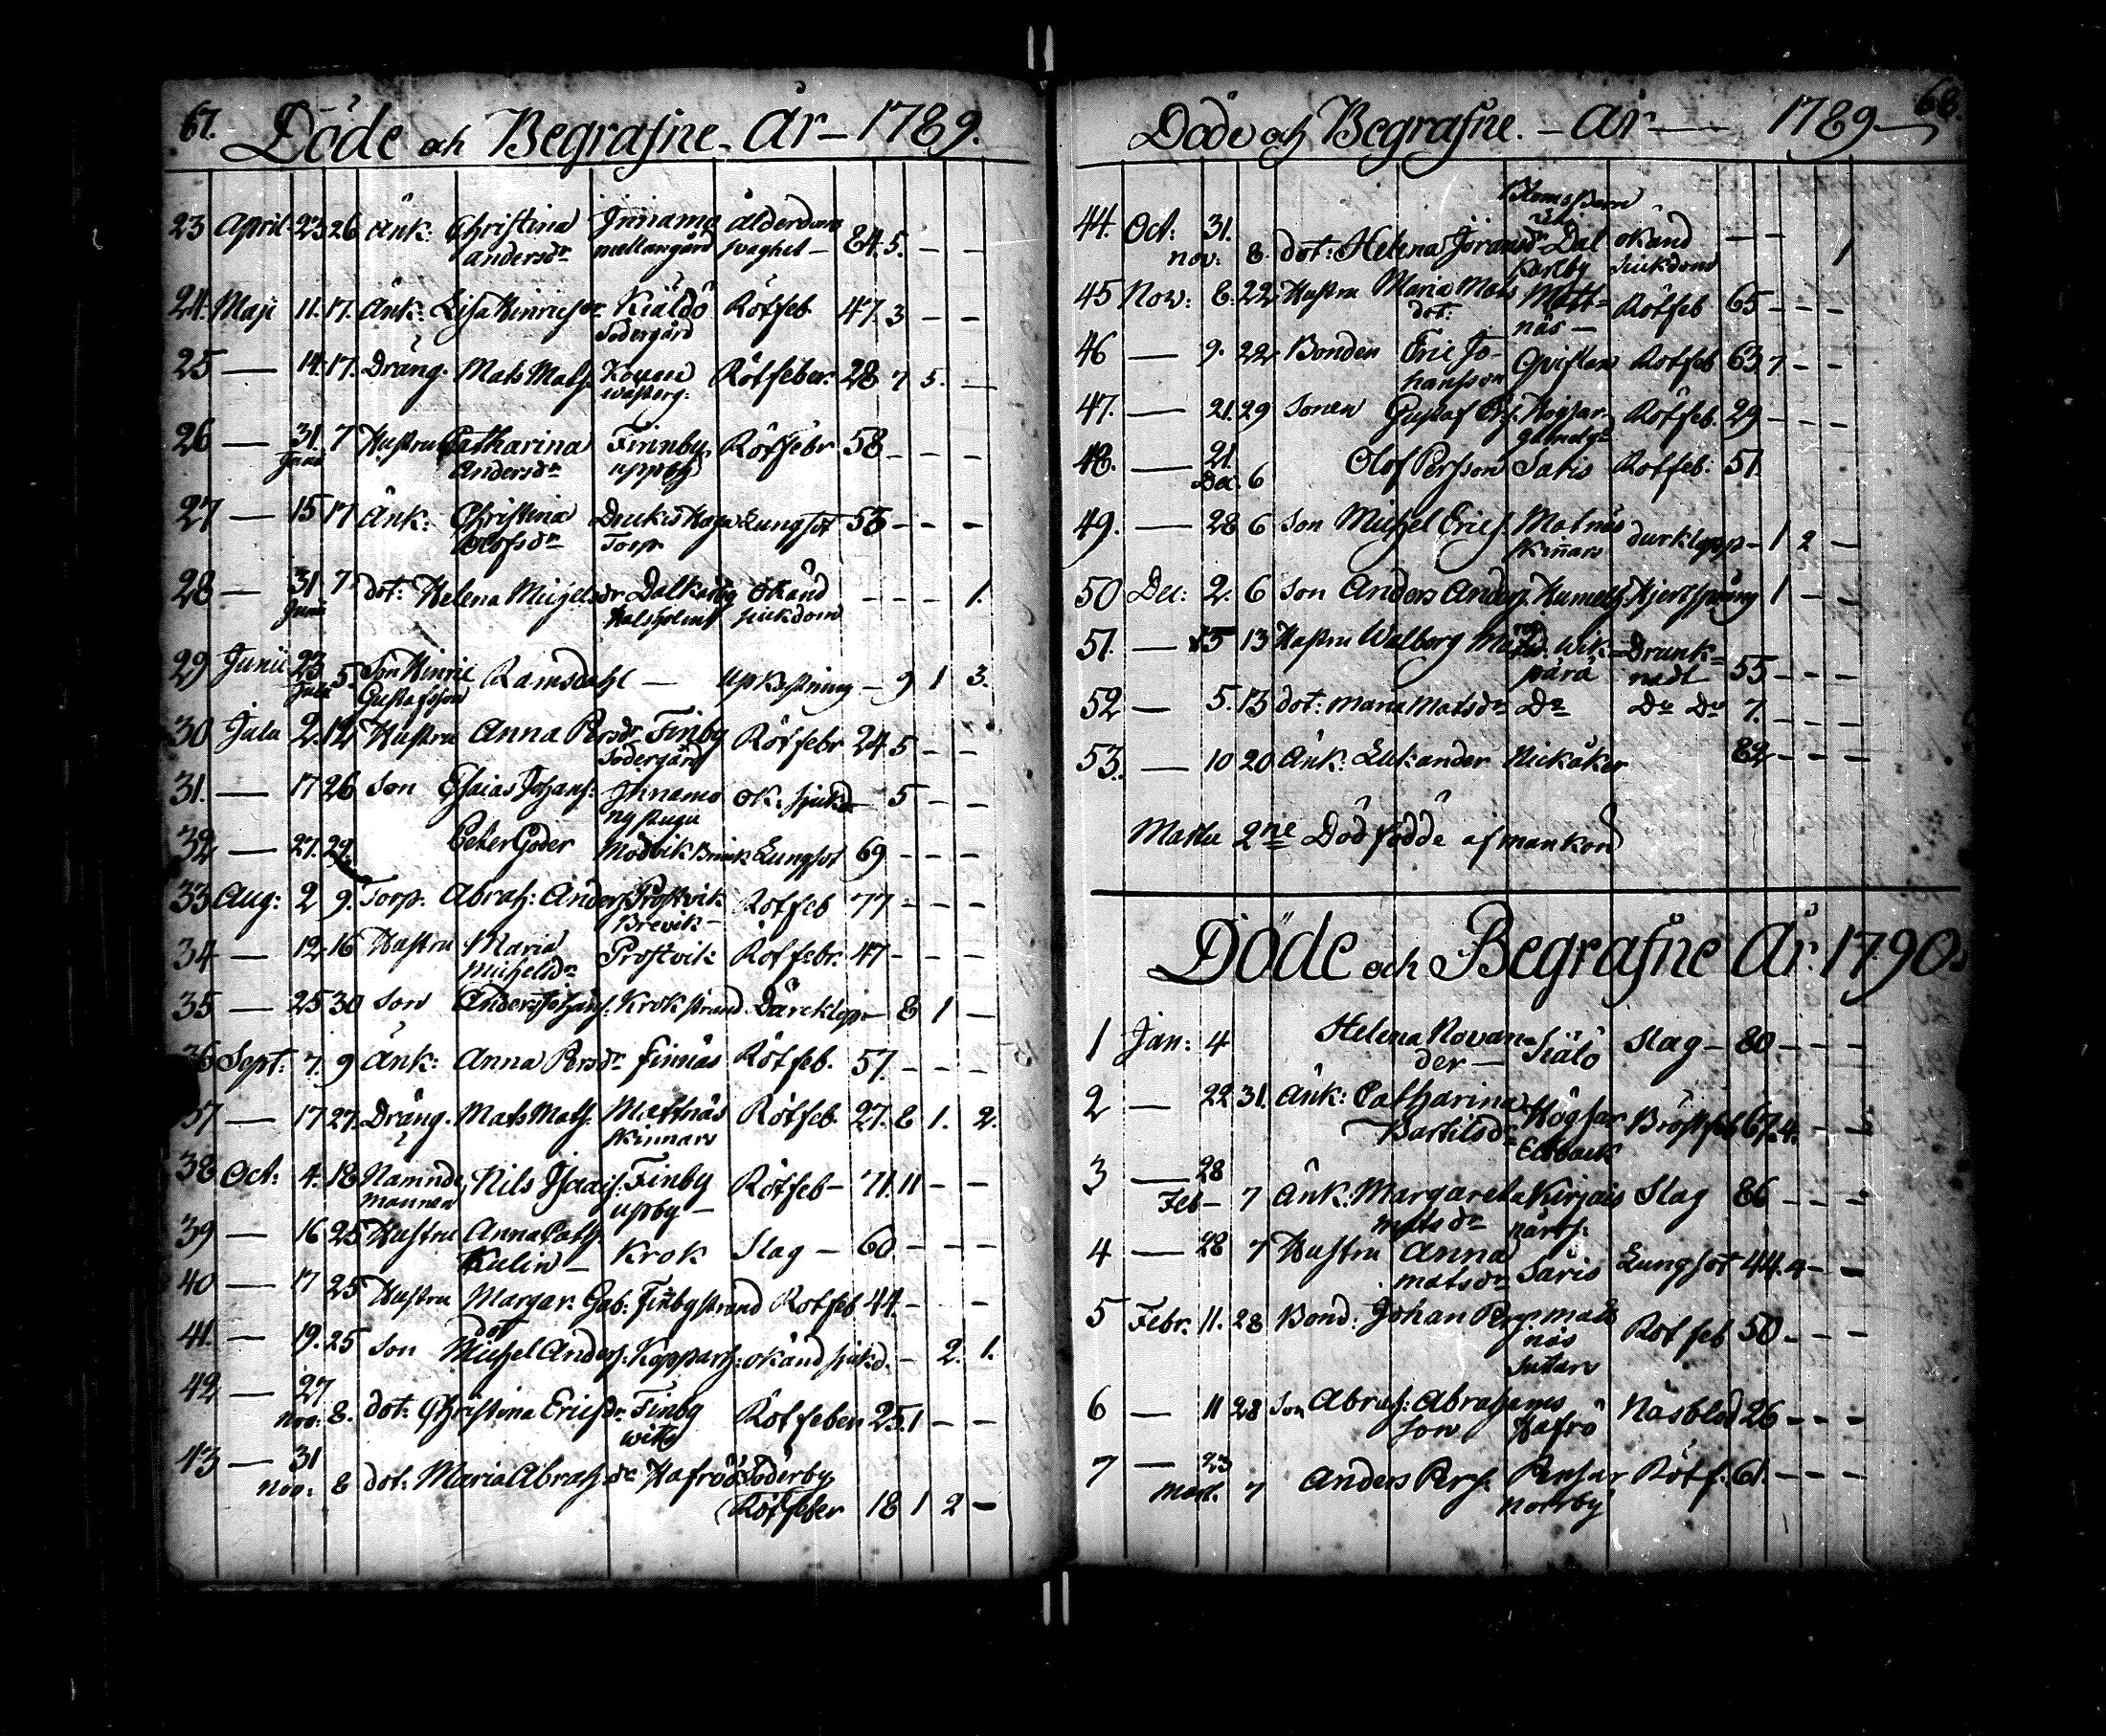 67. Döde och Begrafne År 1789.
23 April 23 26 Änk: Christina Jnnamo Ålderdoms
Andersdr mellangård swaghet — 84. 5. — —
24. Maji 11. 17. Änk: Lisa Hinricsdr Kiäldö Rötfeb. 47. 3 — —
Södergård
25 — 14. 17. Dräng. Mats Mats. Rötfeber. 28 7 5. —
26 — 31. 7 Hustru Catharina Finnby Rötfebr 58 — — —
Junii Andersdr uppby
27 — 15 17 Änk: Christina Lungsot 58 — — —
Olofsdr Torp
28 — 31. 7. dot: Helena Michelsdr Dalkarby Okänd — — — 1.
Junii Halsholmt siukdom
29 Junii 23 5 Son Hinric Ramsdahl — upkastning — 9 1 3.
Julii Gustafsson
30 Julii 2. 12 Hustru Anna Persdr Finby Rötfebr 24. 5 — —
Södergård
31. — 17 26 Son Esaias Johans: Jnnamo ok: siukd — 5 — —
nystugu
32 — 27. 29. Peter Goder Modvik Brink Lungsot 69 — — —
33 Aug: 2 9. Torp. Abrah: Anders. Prostvik Rotfeb 77 — — —
Brevik —
34 — 12. 16 Hustru Maria Prostvik Rötfebr. 47 — — —
Michelsdr
35 — 25 30 Son Anders Johans. Krok strand — 8 1 —
36 Sept: 7. 9 Änk: Anna Persdr Finnäs Rötfeb. 57. — — —
37 — 17 27. Dräng. Mats Mats. Mattnäs Rötfeb. 27. 8 1. 2.
Kinnars
38 Oct: 4. 18 Nämnde Nils Jsacs. Finby Rötfeb — 71. 11 — —
mannen upby —
39 — 16 25 Hustru Anna Cath
Kulin — Krok Slag — 60 — — —
40 — 17 25 Hustru Margar: Gab: Finby strand Rotfeb 44. — — —
dot
41. — 19. 25 Son Michel Anders: Koppars: okänd siukd. — 2. 1.
42 — 27
nov: 8. dot: Christina Ericsdr Finby Rötfeber 25. 1 — —
43 — 31
nov: 8 dot: Maria Abrahsdr Hafrö Söderby
Rötfeber 18 1 2 —
68.
Döde och Begrafne. — År — 1789
44. Oct: 31. okänd — —
nov: 8. dot: Helena Jöransdr Dal 1
Karlby siukdom
45 Nov: 8. 22 Hustru Maria Mats Matt= Rötfeb 65 — — —
dot: näs —
46 — 9. 22 Bonden Eric Jo= Qvistan Rotfeb 63. 7 — —
hansson
47. — 21. 29 Sonen Gustaf Högsar Rötfeb. 29 — — —
48. — 21. Olof Persson Saris Rotfeb: 51.
Dec. 6
49. — 28 6 Son Michel Erics. Matnäs durklopp — 1 2 —
Kinnars
50 Dec: 2. 6 Son Anders Anders. Hjertsprång 1 — —
51. — 5 13 Hustru Walborg Wik= Drunk=
pärä nadt 55 — — —
52 — 5. 13 dot: Maria Matsdr Do Do Do 7. — — —
53. — 10 20 Änk. Lukander Nickäker 82 — — —
2ne Död födde af mankön
Döde och Begrafne År. 1790.
1 Jan: 4 Helena Novan=
der — Siälö Slag — 80 — — —
2 — 22 31. Änk: Catharina Högsar Bröstfeb 67. 4. — —
Bartilsdr
3 — 28
Feb — 7 Änk. Margareta Kirjais Slag 86 — — —
Matsdr
4 — 28 7 Hustru Anna Saris Lungsot 44. 4 — —
Matsdr
5 Febr. 11. 28 Bond: Johan Pers. Mat
näs Rotfeb 50 — — —
6 — 11 28 Son Abrah: Abrahams Näsblod 26 — — —
son Hafrö
7 — 23
Mart. 7 Anders Pers. Pensar Rötf. 61. — — —
norrby